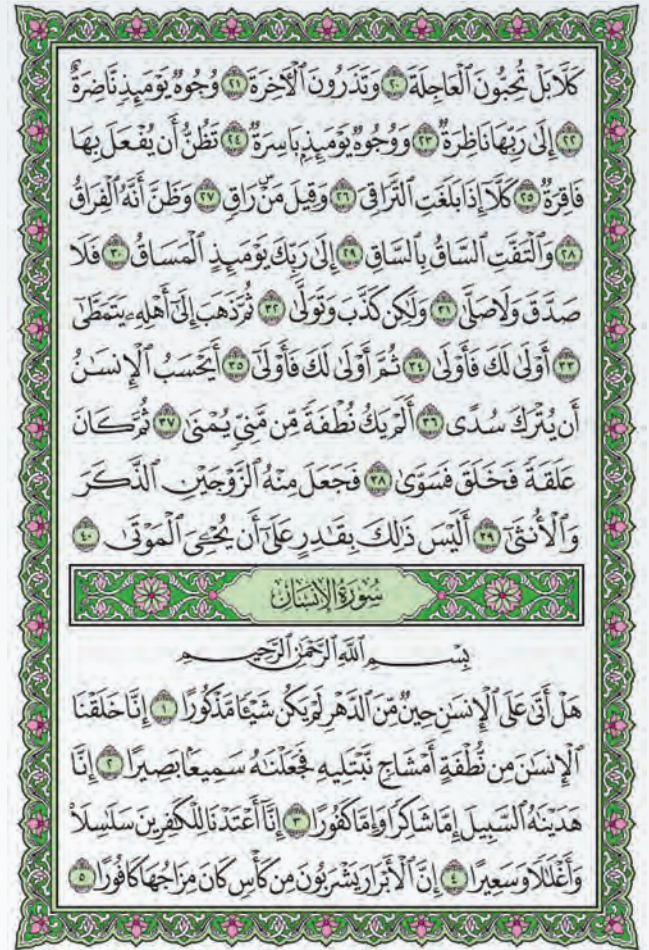 كَلَّا بَلْ تُحِبُّونَ ٱلْعَاجِلَةَ ٢٠ وَتَذَرُونَ ٱلْأَخِرَةَ ٢١ وُجُوهٌ يَوْمَئِذٍ نَّاضِرَةٌ
٢٢ إِلَىٰ رَبِّهَا نَاظِرَةٌ ٢٣ وَوُجُوهٌ يَوْمَئِذٍۭ بَاسِرَةٌ ٢٤ تَظُنُّ أَن يُفْعَلَ بِهَا
فَاقِرَةٌ ٢٥ كَلَّآ إِذَا بَلَغَتِ ٱلتَّرَاقِىَ ٢٦ وَقِيلَ مَنْۜ رَاقٍ ٢٧ وَظَنَّ أَنَّهُ ٱلْفِرَاقُ
٢٨ وَٱلْتَفَّتِ ٱلسَّاقُ بِٱلسَّاقِ ٢٩ إِلَىٰ رَبِّكَ يَوْمَئِذٍ ٱلْمَسَاقُ ٣٠ فَلَا
صَدَّقَ وَلَا صَلَّىٰ ٣١ وَلَٰكِن كَذَّبَ وَتَوَلَّىٰ ٣٢ ثُمَّ ذَهَبَ إِلَىٰٓ أَهْلِهِۦ يَتَمَطَّىٰٓ
٣٣ أَوْلَىٰ لَكَ فَأَوْلَىٰ ٣٤ ثُمَّ أَوْلَىٰ لَكَ فَأَوْلَىٰٓ ٣٥ أَيَحْسَبُ ٱلْإِنسَٰنُ
أَن يُتْرَكَ سُدًى ٣٦ أَلَمْ يَكُ نُطْفَةً مِّن مَّنِىٍّ يُمْنَىٰ ٣٧ ثُمَّ كَانَ
عَلَقَةً فَخَلَقَ فَسَوَّىٰ ٣٨ فَجَعَلَ مِنْهُ ٱلزَّوْجَيْنِ ٱلذَّكَرَ
وَٱلْأُنثَىٰٓ ٣٩ أَلَيْسَ ذَٰلِكَ بِقَٰدِرٍ عَلَىٰٓ أَن يُحْـِۧىَ ٱلْمَوْتَىٰ ٤٠
سُورَةُ الإِنسَان
بِسْمِ ٱللَّهِ ٱلرَّحْمَٰنِ ٱلرَّحِيمِ
هَلْ أَتَىٰ عَلَى ٱلْإِنسَٰنِ حِينٌ مِّنَ ٱلدَّهْرِ لَمْ يَكُن شَيْـًٔا مَّذْكُورًا ١ إِنَّا خَلَقْنَا
ٱلْإِنسَٰنَ مِن نُّطْفَةٍ أَمْشَاجٍ نَّبْتَلِيهِ فَجَعَلْنَٰهُ سَمِيعًۢا بَصِيرًا ٢ إِنَّا
هَدَيْنَٰهُ ٱلسَّبِيلَ إِمَّا شَاكِرًا وَإِمَّا كَفُورًا ٣ إِنَّآ أَعْتَدْنَا لِلْكَٰفِرِينَ سَلَٰسِلَا۟
وَأَغْلَٰلًا وَسَعِيرًا ٤ إِنَّ ٱلْأَبْرَارَ يَشْرَبُونَ مِن كَأْسٍ كَانَ مِزَاجُهَا كَافُورًا ٥